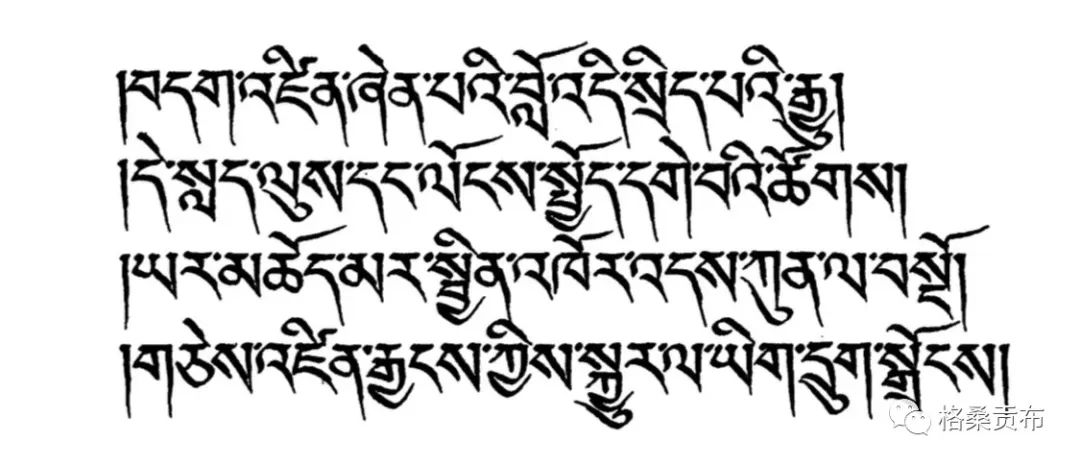 །བདག་འཛིན་ཞེན་པའི་བློ་འདི་སྲིད་པའི་རྒྱུ།
།དེ་སླད་ལུས་དང་ལོངས་སྤྱོད་དགེ་བའི་ཚོགས།
།ཡར་མཆོད་མར་སྦྱིན་འཁོར་འདས་ཀུན་ལ་བསྔོ།
།གཅེས་འཛིན་རྒྱངས་ཀྱིས་སྐྱུར་ལ་ཡིག་དྲུག་སྒྲོངས།
格桑贡布